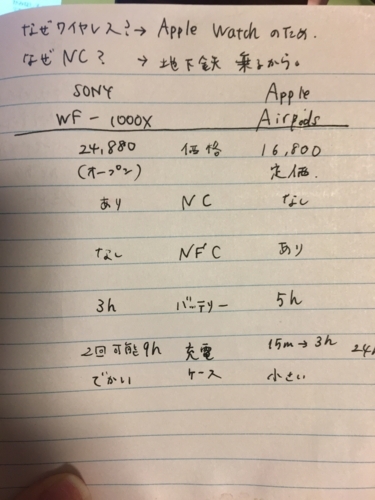 なぜワイヤレス？→ Apple Watch のため.
なぜ NC？ → 地下鉄 乗るから。
SONY Apple
WF-1000X Airpods
24,880 価格 16,800
(オープン) 定価.
あり NC なし
なし NFC あり
3h バッテリー 5h
2回可能 9h 充電 15m → 3h 24h
でかい ケース 小さい